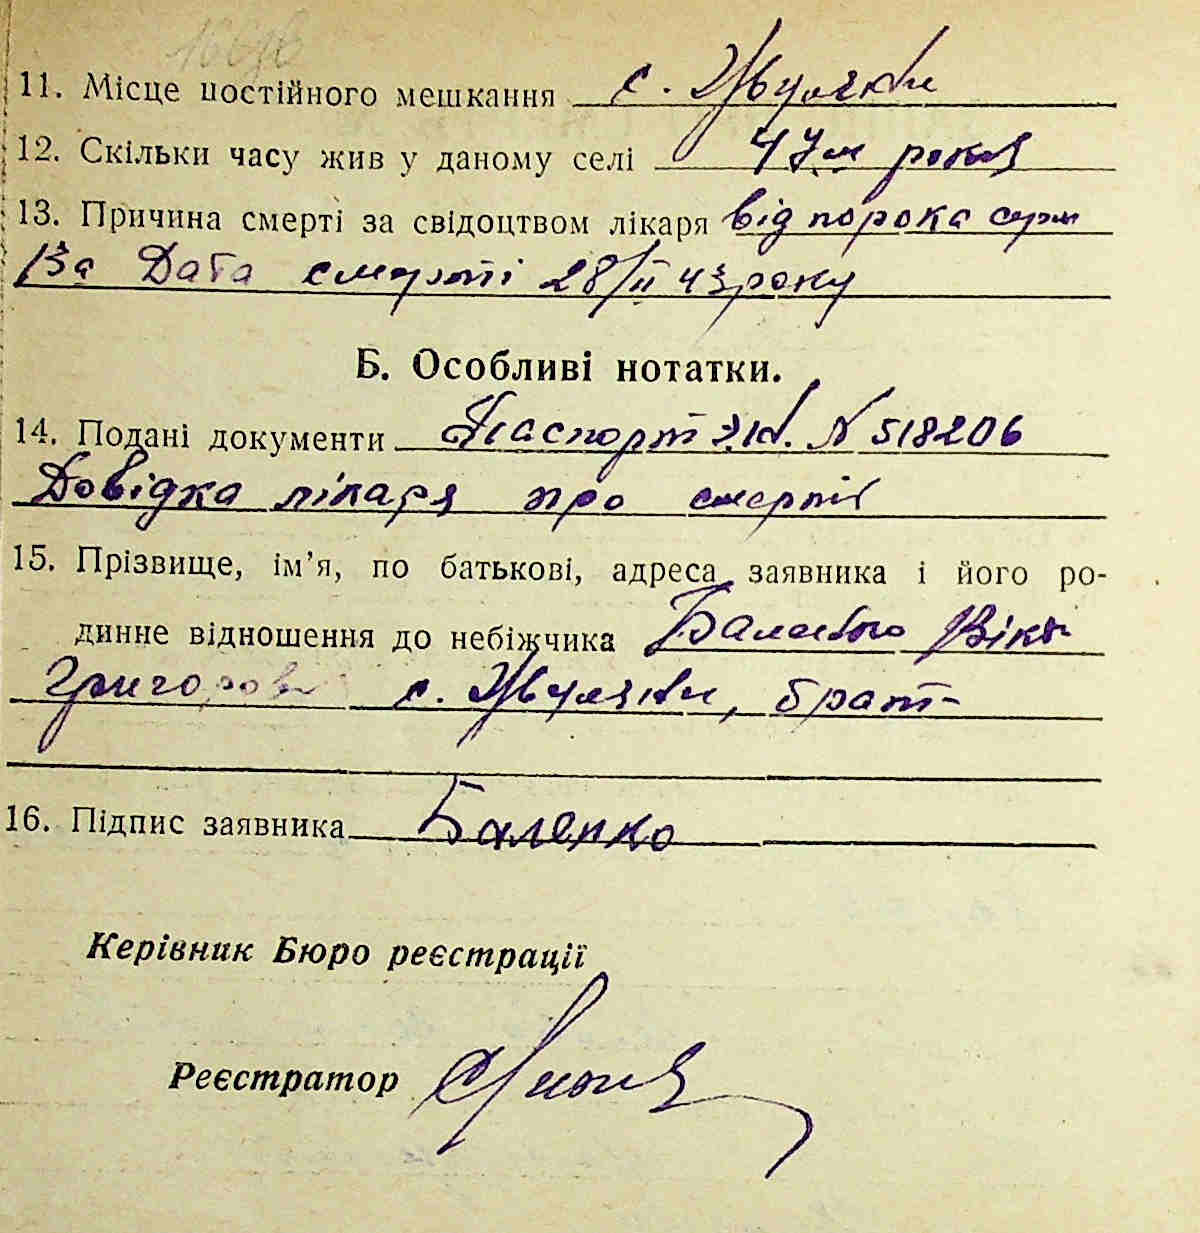 11. Місце постійного мешкання с. Жуляни
12. Скільки часу жив у даному селі 47 м роки
13. Причина смерті за свідоцтвом лікаря від порока серц
Дата смерті 28/II 43 року
Б. Особливі нотатки.
14. Подані документи Паспорт N 518206
Довідка лікаря про смерть
15. Прізвище, ім’я, по батькові, адреса заявника і його ро-
динне відношення до небіжчика
Григоров с. Жуляни, брат
16. Підпис заявника Баленко
Керівник Бюро реєстрації
Реєстратор